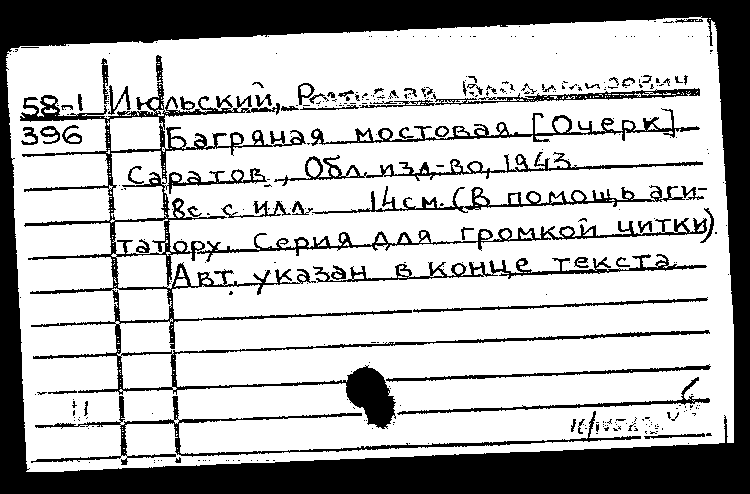 58-1 Июльский, Ростислав Владимирович
396 Багряная мостовая. [Очерк]
Саратов, Обл. изд-во, 1943.
18с. с илл. 14см. (В помощь аги-
татору. Серия для громкой читки).
Авт. указан в конце текста